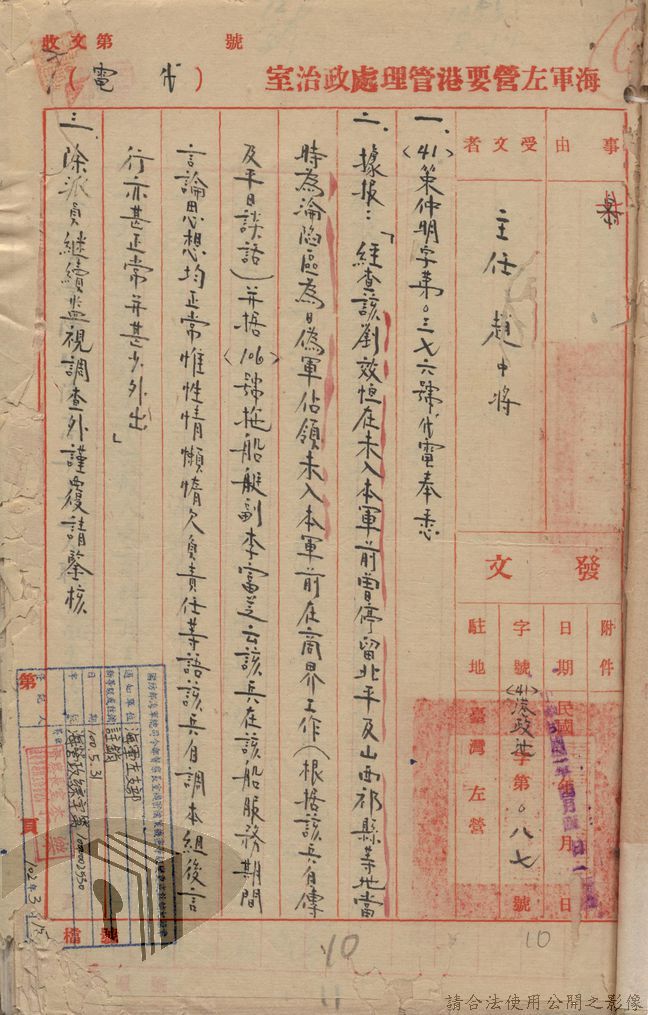 收文第　　號
海軍左營要港管理處政治室
（代電）
事由
受文者
主任趙中將
發文
附件
日期
民國　年　月　日
字號
(41)　政　字第〇八七號
駐地
臺灣左營
一、(41)策仲明字第〇三七六號代電奉悉
二、據報：「經查該劉效恒在未入本軍前曾停留北平及山西祁縣等地當
時為淪陷區為日偽軍佔領未入本軍前在商界工作(根據該兵自傳
及平日談話)并據(106)號拖船艇副李富芝云該兵在該船服務期間
言論思想均正常惟性情懶惰欠負責任等語該兵自調本組後言
行亦甚正常并甚少外出」
三、除派員繼續監視調查外謹覆請鑒核
通知單位
海軍司令部
註銷
日期
100.5.31
海營政綜字第
第　頁
檔號
102年3
10
10
11
請合法使用公開之影像